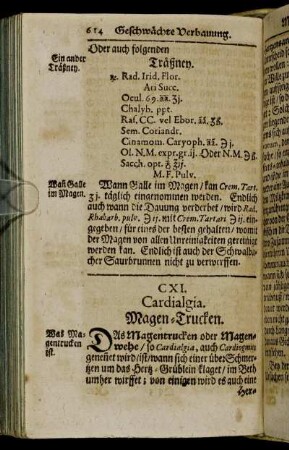 614 Geschwächte Verdauung.
Oder auch folgenden
Ein ander Träßney.
Träßney.
℞. Rad. Irid. Flor.
Ari Succ.
Ocul. 69. āā. ʒj.
Chalyb. ppt.
Raſ. CC. vel Ebor. āā. ʒß.
Sem. Coriandr.
Cinamom. Caryoph. āā. ℈j
Ol. N.M. expr. gr. ij. Oder N.M. ℈ß.
Sacch. opt.
M. F. Pulv.
Wañ Galle im Magen.
Wann Galle im Magen/ kan Crem. Tart.
ʒj. täglich eingenommen werden. Endlich
auch wann die Dauung verderbet/ wird Rad.
Rhabarb. pulv. ℈j. mit Crem. Tartari ℈j. ein-
gegeben/ für eines der besten gehalten/ womit
der Magen von allen Unreinigkeiten gereinigt
werden kan. Endlich ist auch der Schwalbi-
cher Saurbrunnen nicht zu verwerffen.
CXI.
Cardialgia.
Magen-Trucken.
Was Ma-
gentrucken
ist.
DAs Magentrucken oder Magen-
wehe/ so Cardialgia, auch Cardiogmus
genennet wird/ ist/ wann sich einer über Schmer-
tzen um das Hertz-Grüblein klaget/ im Beth
umher wirffet; von einigen wird es auch eine
Her-